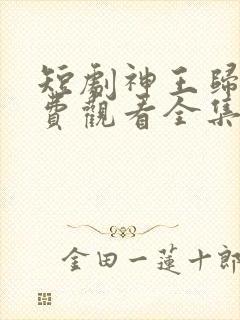 短劇神王歸
費觀看全集
金田一蓮十郎